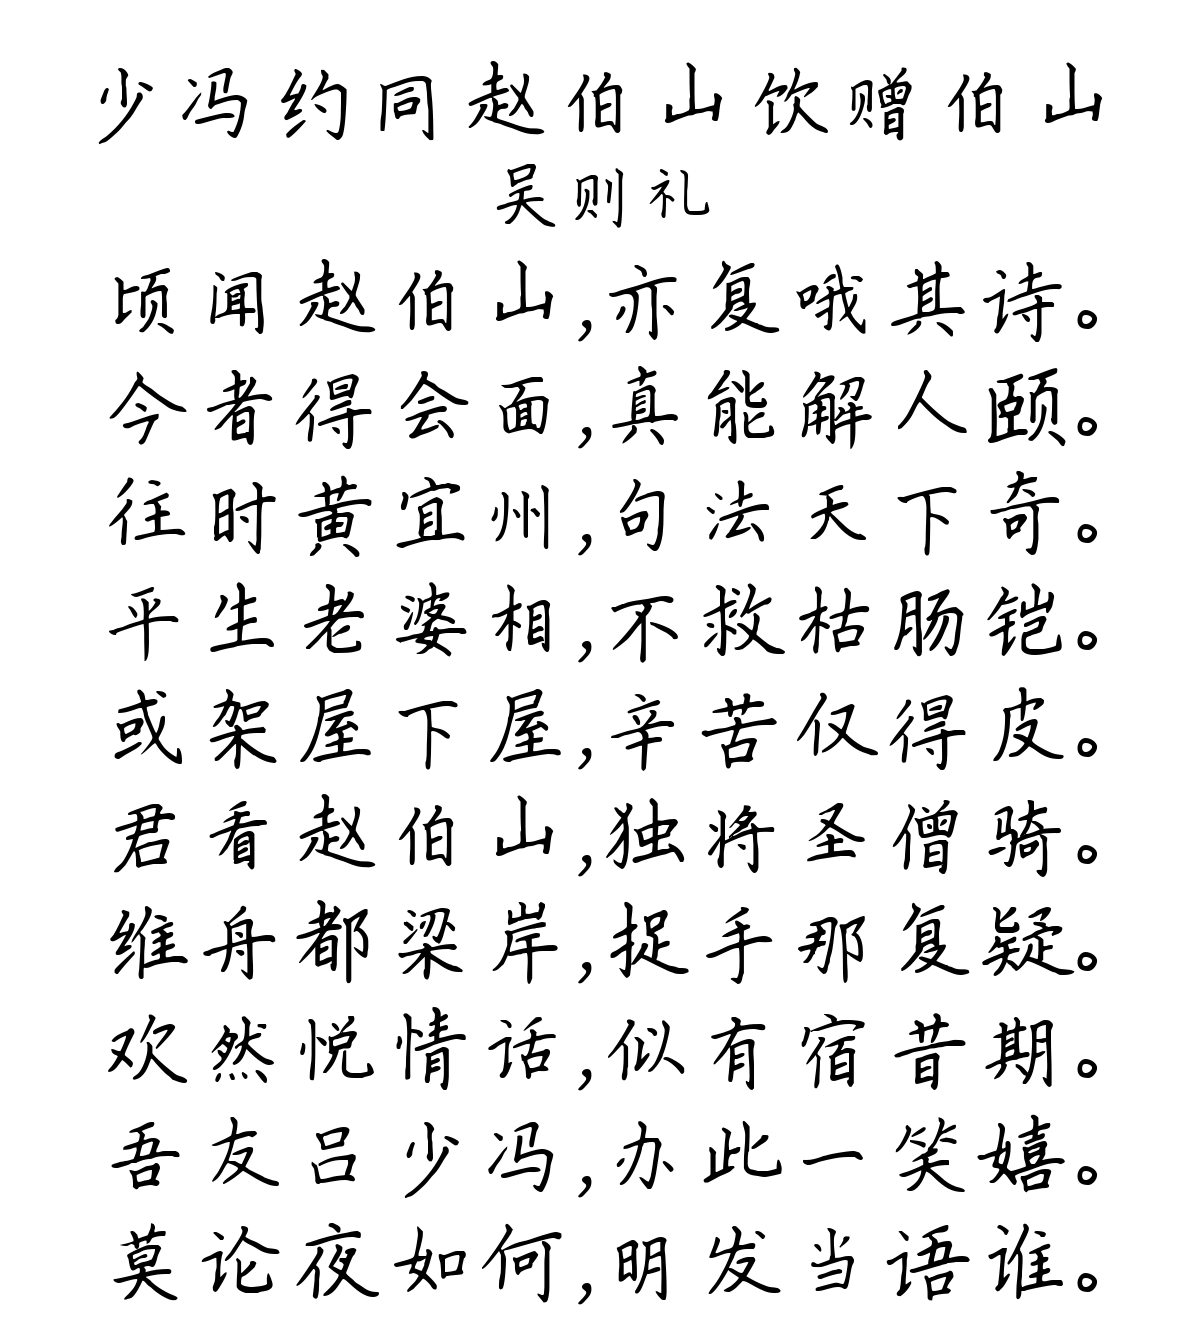 少冯约同赵伯山饮赠伯山
吴则礼
顷闻赵伯山,亦复哦其诗。
今者得会面,真能解人颐。
往时黄宜州,句法天下奇。
平生老婆相,不救枯肠铠。
或架屋下屋,辛苦仅得皮。
君看赵伯山,独将圣僧骑。
维舟都梁岸,捉手那复疑。
欢然悦情话,似有宿昔期。
吾友吕少冯,办此一笑嬉。
莫论夜如何,明发当语谁。